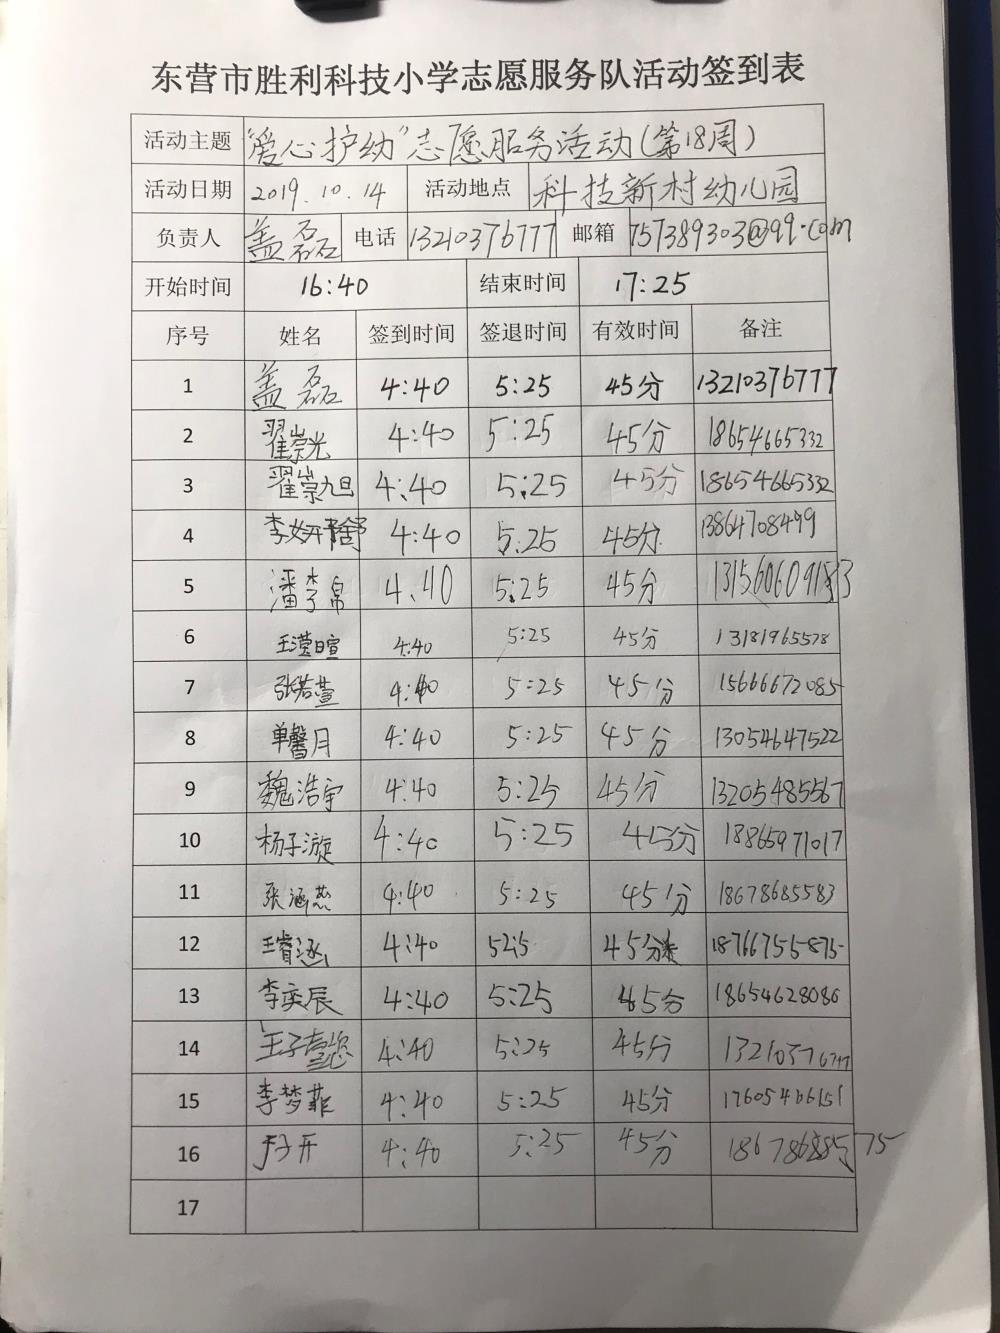 东营市胜利科技小学志愿服务队活动签到表
活动主题 “爱心护幼”志愿服务活动(第18周)
活动日期 2019.10.14 活动地点 科技新村幼儿园
负责人 盖磊 电话 13210376777 邮箱 757389303@qq.com
开始时间 16:40 结束时间 17:25
序号 姓名 签到时间 签退时间 有效时间 备注
1 盖磊 4:40 5:25 45分 13210376777
2 翟崇光 4:40 5:25 45分 18654665332
3 翟崇旭 4:40 5:25 45分 18654665332
4 李妍舒 4:40 5:25 45分 13864708499
5 4:40 5:25 45分
6 王滢暄 4:40 5:25 45分 13181965578
7 张若萱 4:40 5:25 45分 15666672085
8 单馨月 4:40 5:25 45分 13054647522
9 魏浩宇 4:40 5:25 45分 13205485567
10 杨子漩 4:40 5:25 45分 18865971017
11 张涵 4:40 5:25 45分 18678685583
12 王睿涵 4:40 525 45分 18766755875
13 李奕辰 4:40 5:25 45分 18654628086
14 王子 4:40 5:25 45分 13210376777
15 李梦菲 4:40 5:25 45分 17605466151
16 4:40 5:25 45分
17